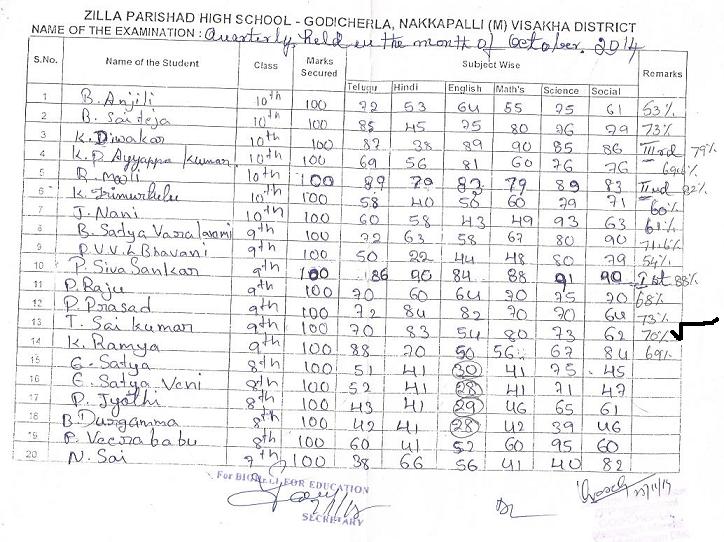 ZILLA PARISHAD HIGH SCHOOL - GODICHERLA, NAKKAPALLI (M) VISAKHA DISTRICT
NAME OF THE EXAMINATION : Quarterly, held in the month of October. 2014
S.No. Name of the Student Class Marks Secured Subject Wise Remarks
Telugu Hindi English Math's Science Social
1 B. Anjili 10th 100 72 53 64 55 75 61 53%
2 B. Sai teja 10th 100 85 45 75 80 76 79 73%
3 K. Diwakar 10th 100 87 38 89 90 85 86 IIIrd 79%
4 K. D. Ayyappa Kumar 10th 100 69 56 81 60 76 76
5 R. Mouli 10th 100 87 79 83 79 89 83 IInd 82%
6 K. Trimurhulu 10th 100 58 40 50 60 79 71 60%
7 J. Nani 10th 100 60 58 43 49 93 63 61%
8 B. Satya 9th 100 72 63 58 67 80 90 71.6%
9 P.V.V.L Bhavani 9th 100 50 22 44 48 80 79 54%
10 P. Siva Sankar 9th 100 86 90 84 88 91 90 Ist 88%
11 P. Raju 9th 100 70 60 64 70 75 70 68%
12 P. Prasad 9th 100 72 84 82 70 70 64 73%
13 T. Sai kumar 9th 100 70 83 54 80 73 62 70%
14 K. Ramya 9th 100 88 70 50 56 67 84 69%
15 G. Satya 8th 100 51 41 30 41 75 45
16 G. Satya Veni 8th 100 52 41 28 41 71 47
17 P. Jyothi 8th 100 43 41 29 46 65 61
18 B. Durgamma 8th 100 42 41 28 42 39 46
19 P. Veerababu 8th 100 60 41 52 60 95 60
20 N. Sai 100 38 66 56 41 40 82
For EDUCATION
SECRETARY